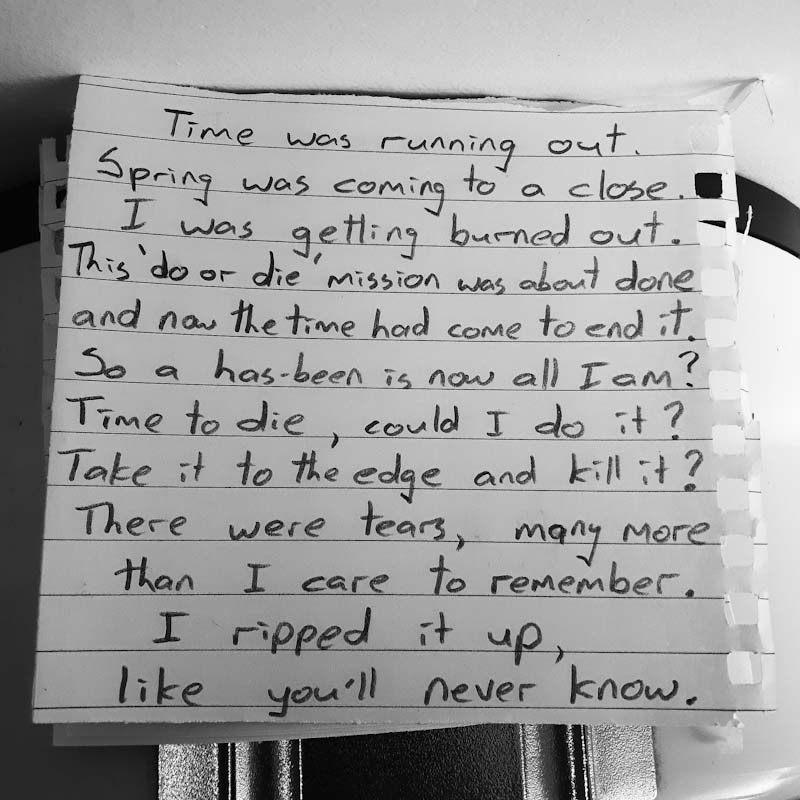 Time was running out.
Spring was coming to a close.
I was getting burned out.
This 'do or die' mission was about done
and now the time had come to end it.
So a has-been is now all I am?
Time to die, could I do it?
Take it to the edge and kill it?
There were tears, many more
than I care to remember.
I ripped it up,
like you'll never know.